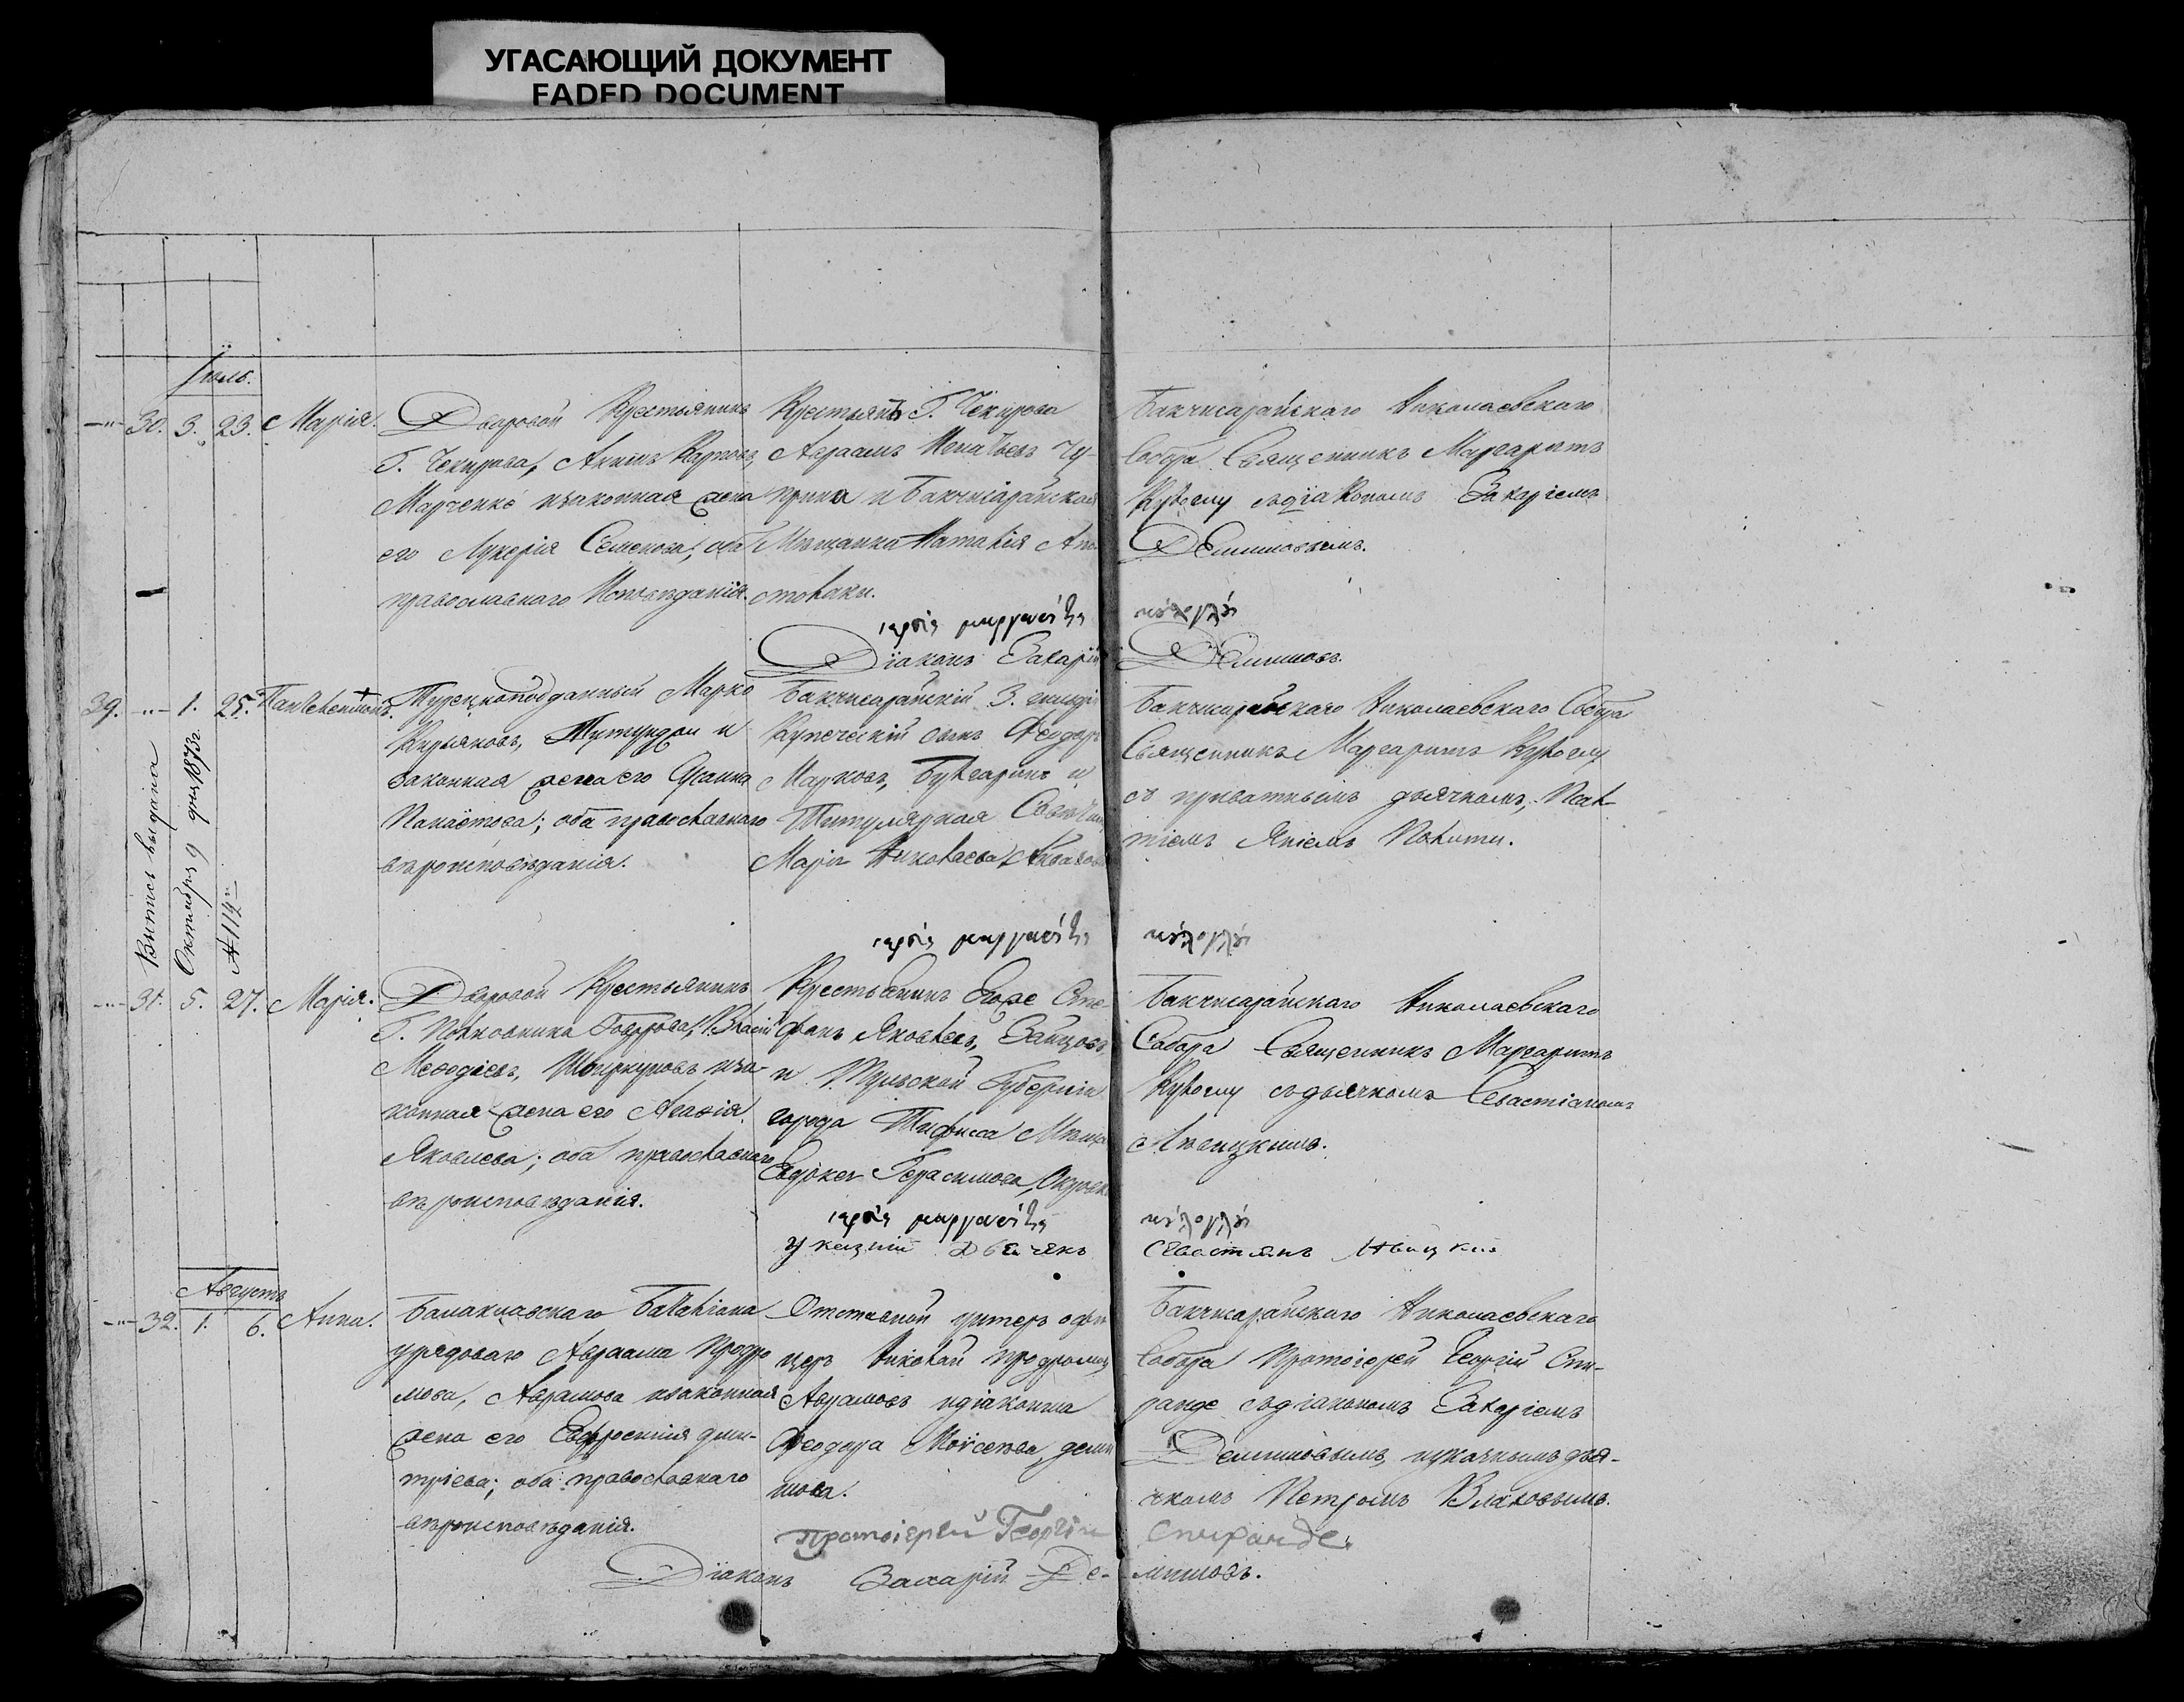 УГАСАЮЩИЙ ДОКУМЕНТ
FADED DOCUMENT
Іюль.
30. 3. 23. Марія.
Дворовой Крестьянинъ
Г. Чекирова, Акимъ Карповъ,
Марченко изаконная жена
его Лукерія Семенова; оба
православнаго Исповѣданія.
Крестьянъ Г. Чекирова
Авраамъ Игнатьевъ Чу-
прина и Бакчисарайская
Мѣщанка Наталія Апо
столаки.
Бакчисарайскаго Николаевскаго
Собора Священникъ Маргаритъ
Кулоглу съдіакономъ Захаріемъ
Демишовымъ.
ιερεὺς μαργαρίτης κούλογλού
Діаконъ Захарій Демишовъ.
39. 1. 25. Пантелеимонъ.
Турецкоподданный Марко
Кирьяковъ, Тутунджи и
законная жена его Сусанна
Панаётова; оба православнаго
вѣроисповѣданія.
Бакчисарайскій 3. гильдіи
Купеческій сынъ Феодоръ
Марковъ, Булгаринъ и
Титулярная
Марія Николаева,
Бакчисарайскаго Николаевскаго Собора
Священникъ Маргаритъ Кулоглу
съ приватнымъ дьячкомъ,
Выпись выдана
Октября 9 дня 1873г.
№ 112
ιερεὺς μαργαρίτης κούλογλού
31. 5. 27. Марія.
Дворовой Крестьянинъ
Г. Полковника
Меѳодіевъ, иза-
конная жена его Агаѳія
Яковлева; оба православнаго
вѣроисповѣданія.
Крестьянинъ Сте-
фанъ Яковлевъ, Зайцовъ
и Тульской Губерніи
города Мѣща
Евдокея Герасимова,
Бакчисарайскаго Николаевскаго
Собора Священникъ Маргаритъ
Кулоглу съдьячкомъ Севастіаномъ
Левицкимъ.
ιερεὺς μαργαρίτης κούλογλού
Указный Дьячекъ Севастьянъ Левицкій
Августъ
32. 1. 6. Анна.
Балаклавскаго Баталіона
урядоваго Авраама Продро
мова, Аврамова изаконная
жена его Евфросинія дми-
тріева; оба православнаго
вѣроисповѣданія.
Отставной унтеръ офи
церъ Николай продромовъ
Аврамовъ идіаконша
Феодора Моѵсеева, деми
шова.
Бакчисарайскаго Николаевскаго
Собора Протоіерей Георгій Спи-
ранде съдіакономъ Захаріемъ
Демишовымъ, иуказнымъ дья-
чкомъ Петромъ Влаховымъ.
Протоіерей Георгій Спиранде.
Діаконъ Захарій Де- мишовъ.